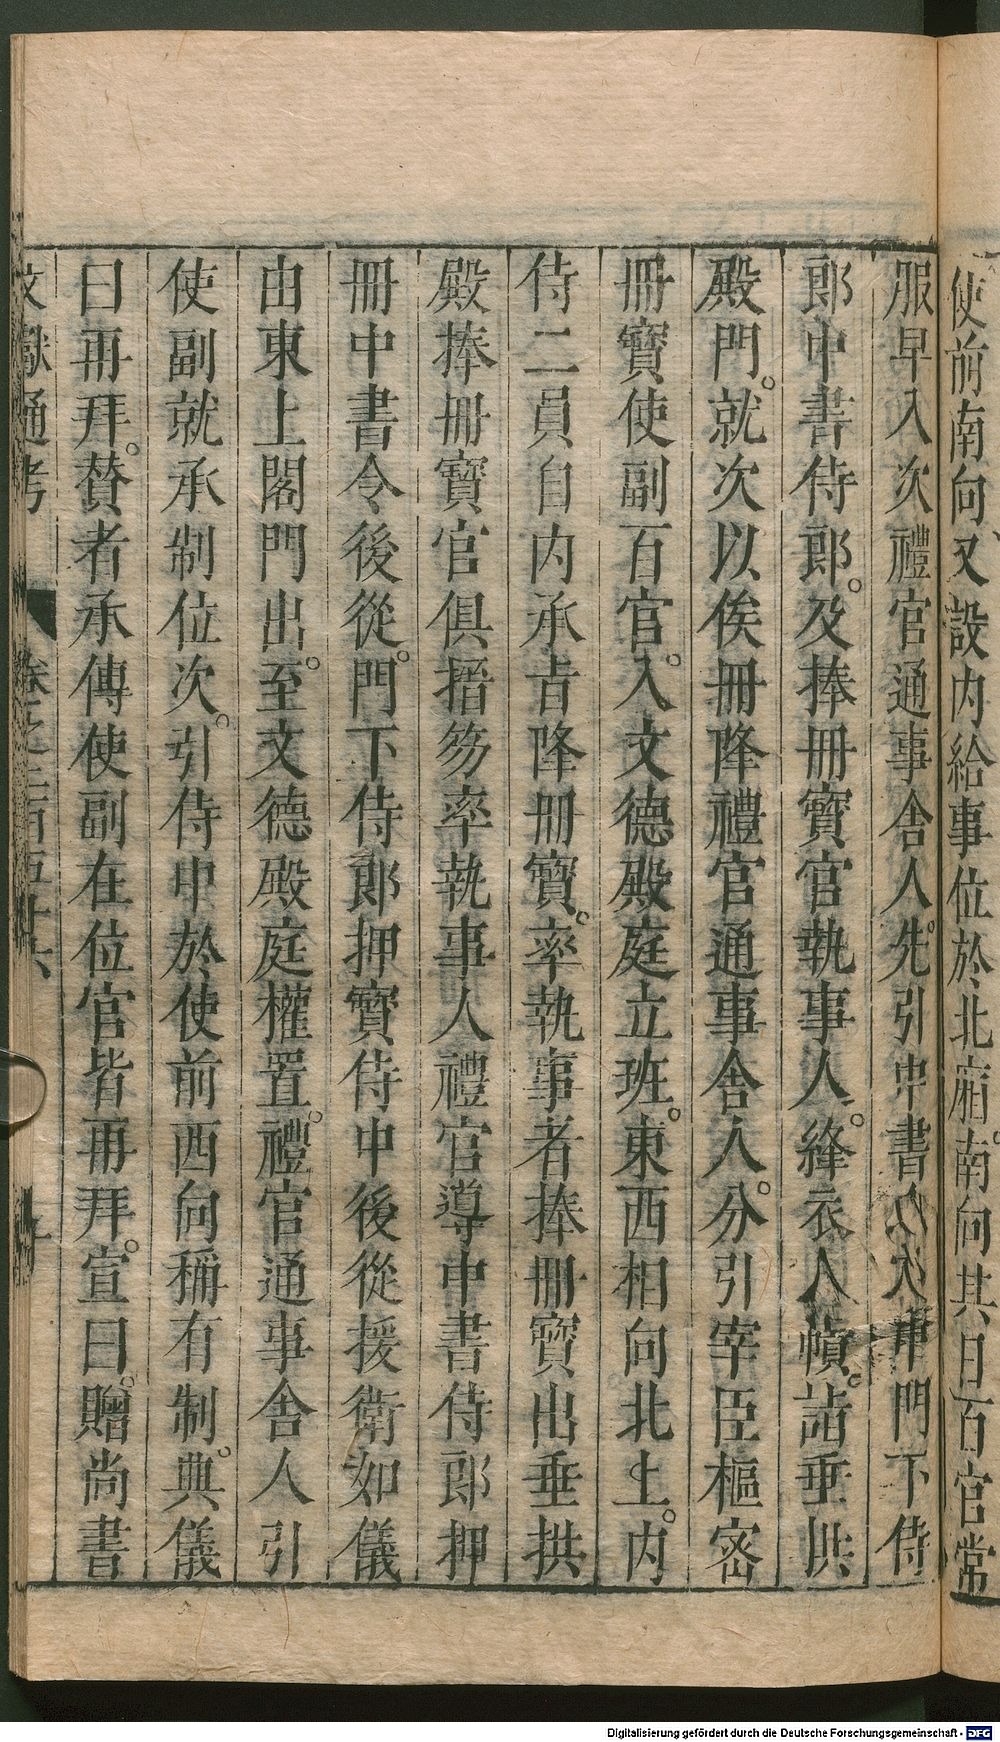 使前南向又設内給事位於北廂南向其日百官常
服早入次禮官通事舍人先引中書令次門下侍
郎中書侍郎。及捧冊寶官執事人。絳衣人幘。詣垂拱
殿門。就次以俟冊降禮官通事舍人。分引宰臣樞密
冊寶使副百官。入文德殿庭立班。東西相向北上。内
侍二員自内承㫖降冊寶。率執事者捧冊寶出垂拱
殿捧冊寶官俱搢笏率執事人禮官導中書侍郎押
冊中書令後從。門下侍郎押寶侍中後從援衛如儀
由東上閣門出。至文德殿庭權置。禮官通事舍人引
使副就承制位次。引侍中於使前西向稱有制。典儀
曰再拜。賛者承傳使副在位官皆再拜。宣曰。贈尚書
文獻通考
卷之二百五十六
Digitalisierung gefördert durch die Deutsche Forschungsgemeinschaft - DFG